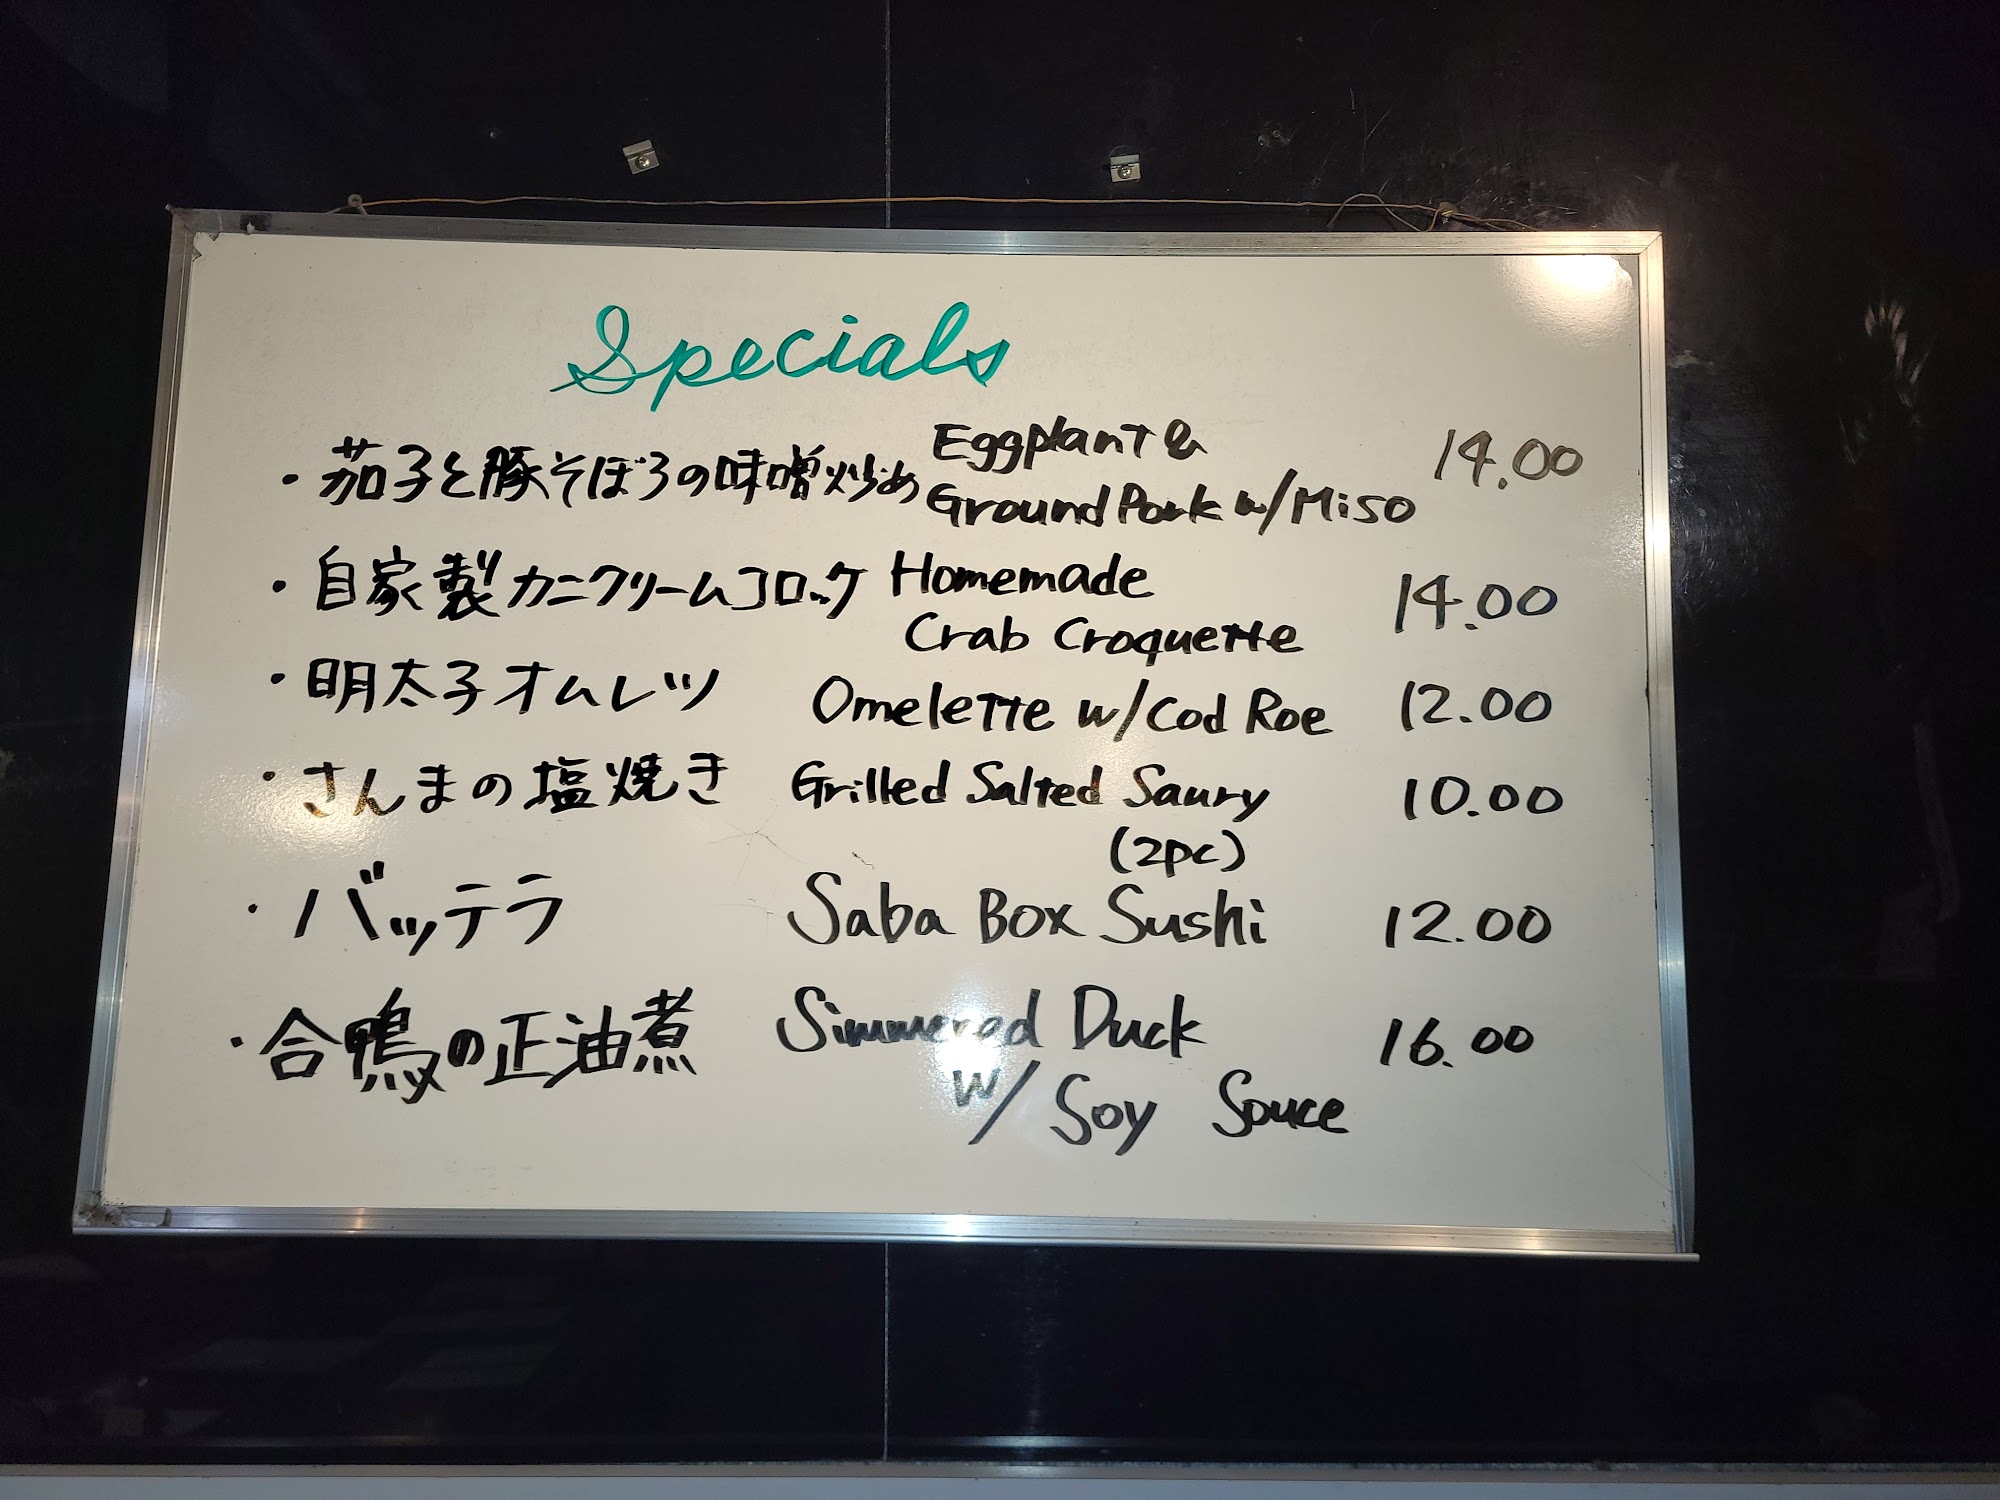 Specials
・茄子と豚そぼろの味噌炒め Eggplant & 14.00
Ground Pork w/Miso
・自家製カニクリームコロッケ Homemade 14.00
Crab Croquette
・明太子オムレツ Omelette w/Cod Roe 12.00
・さんまの塩焼き Grilled Salted Saury 10.00
(2pc)
・バッテラ Saba Box Sushi 12.00
・合鴨の正油煮 Simmered Duck 16.00
w/ Soy Souce